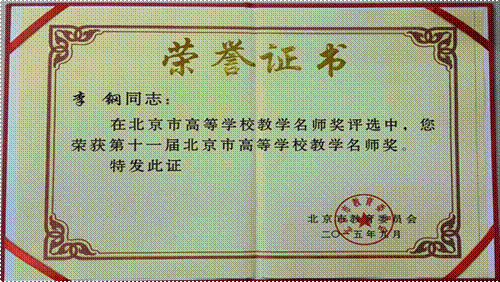 荣誉证书
李 钢同志：
在北京市高等学校教学名师奖评选中，您
荣获第十一届北京市高等学校教学名师奖。
特发此证
北京市教育委员会
二〇一五年九月